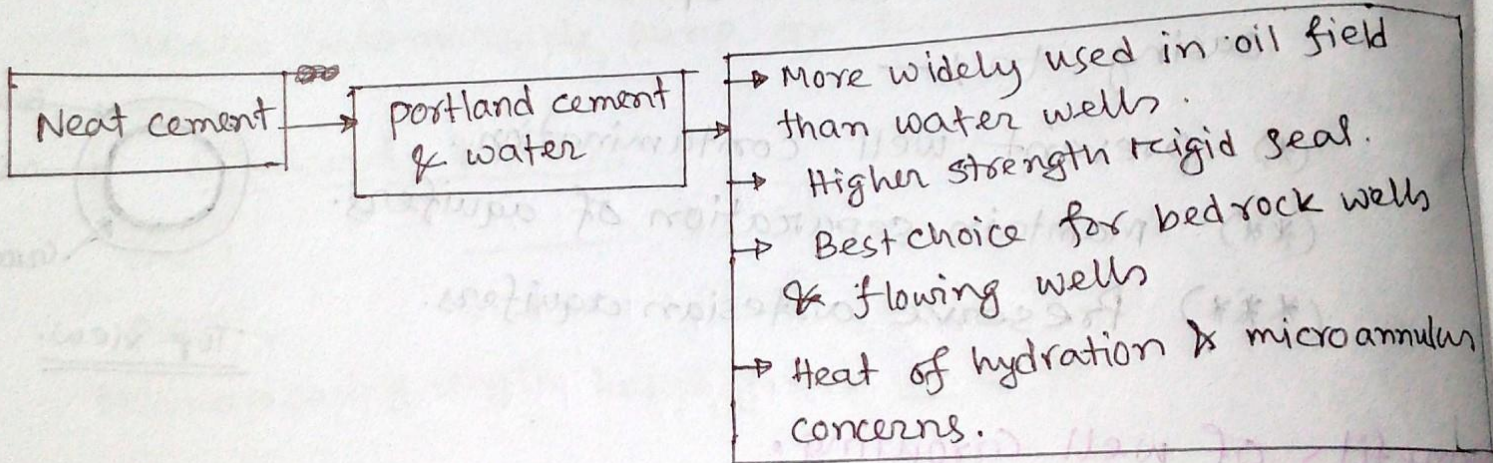 Neat cement
portland cement
& water
More widely used in oil field
than water wells.
Higher strength rigid seal.
Best choice for bedrock wells
& flowing wells
Heat of hydration & microannulus
concerns.